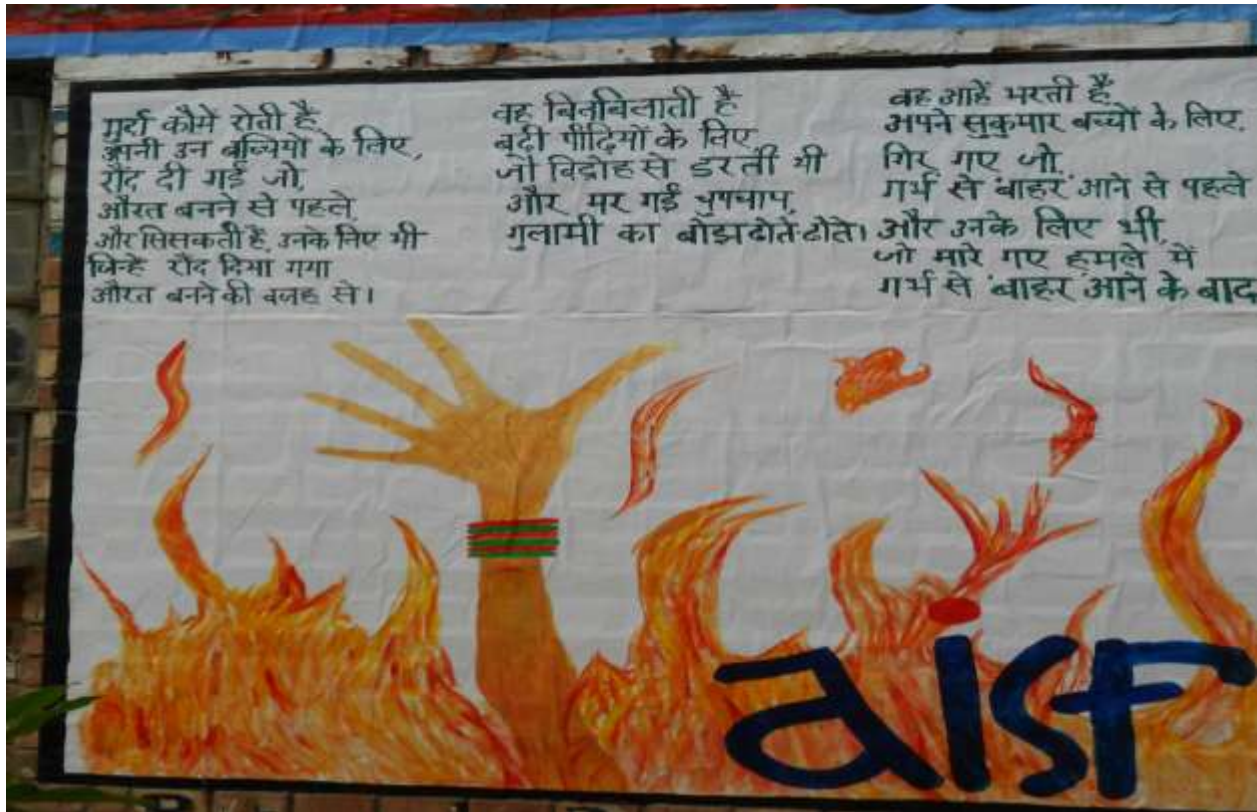 मुर्दा कौमें रोती है
अपनी उन बच्चियों के लिए,
रौंद दी गईं जो,
औरत बनने से पहले,
और सिसकती है, उनके लिए भी
जिन्हें रौंद दिया गया
औरत बनने की वजह से।
वह बिलबिलाती है
बूढ़ी पीढ़ियों के लिए,
जो विद्रोह से डरती थी
और मर गई चुपचाप,
गुलामी का बोझ ढोते-ढोते।
वह आहें भरती है,
अपने सुकुमार बच्चों के लिए,
गिर गए जो,
गर्भ से 'बाहर' आने से पहले
और उनके लिए भी,
जो मारे गए हमले में
गर्भ से 'बाहर' आने के बाद
aisF